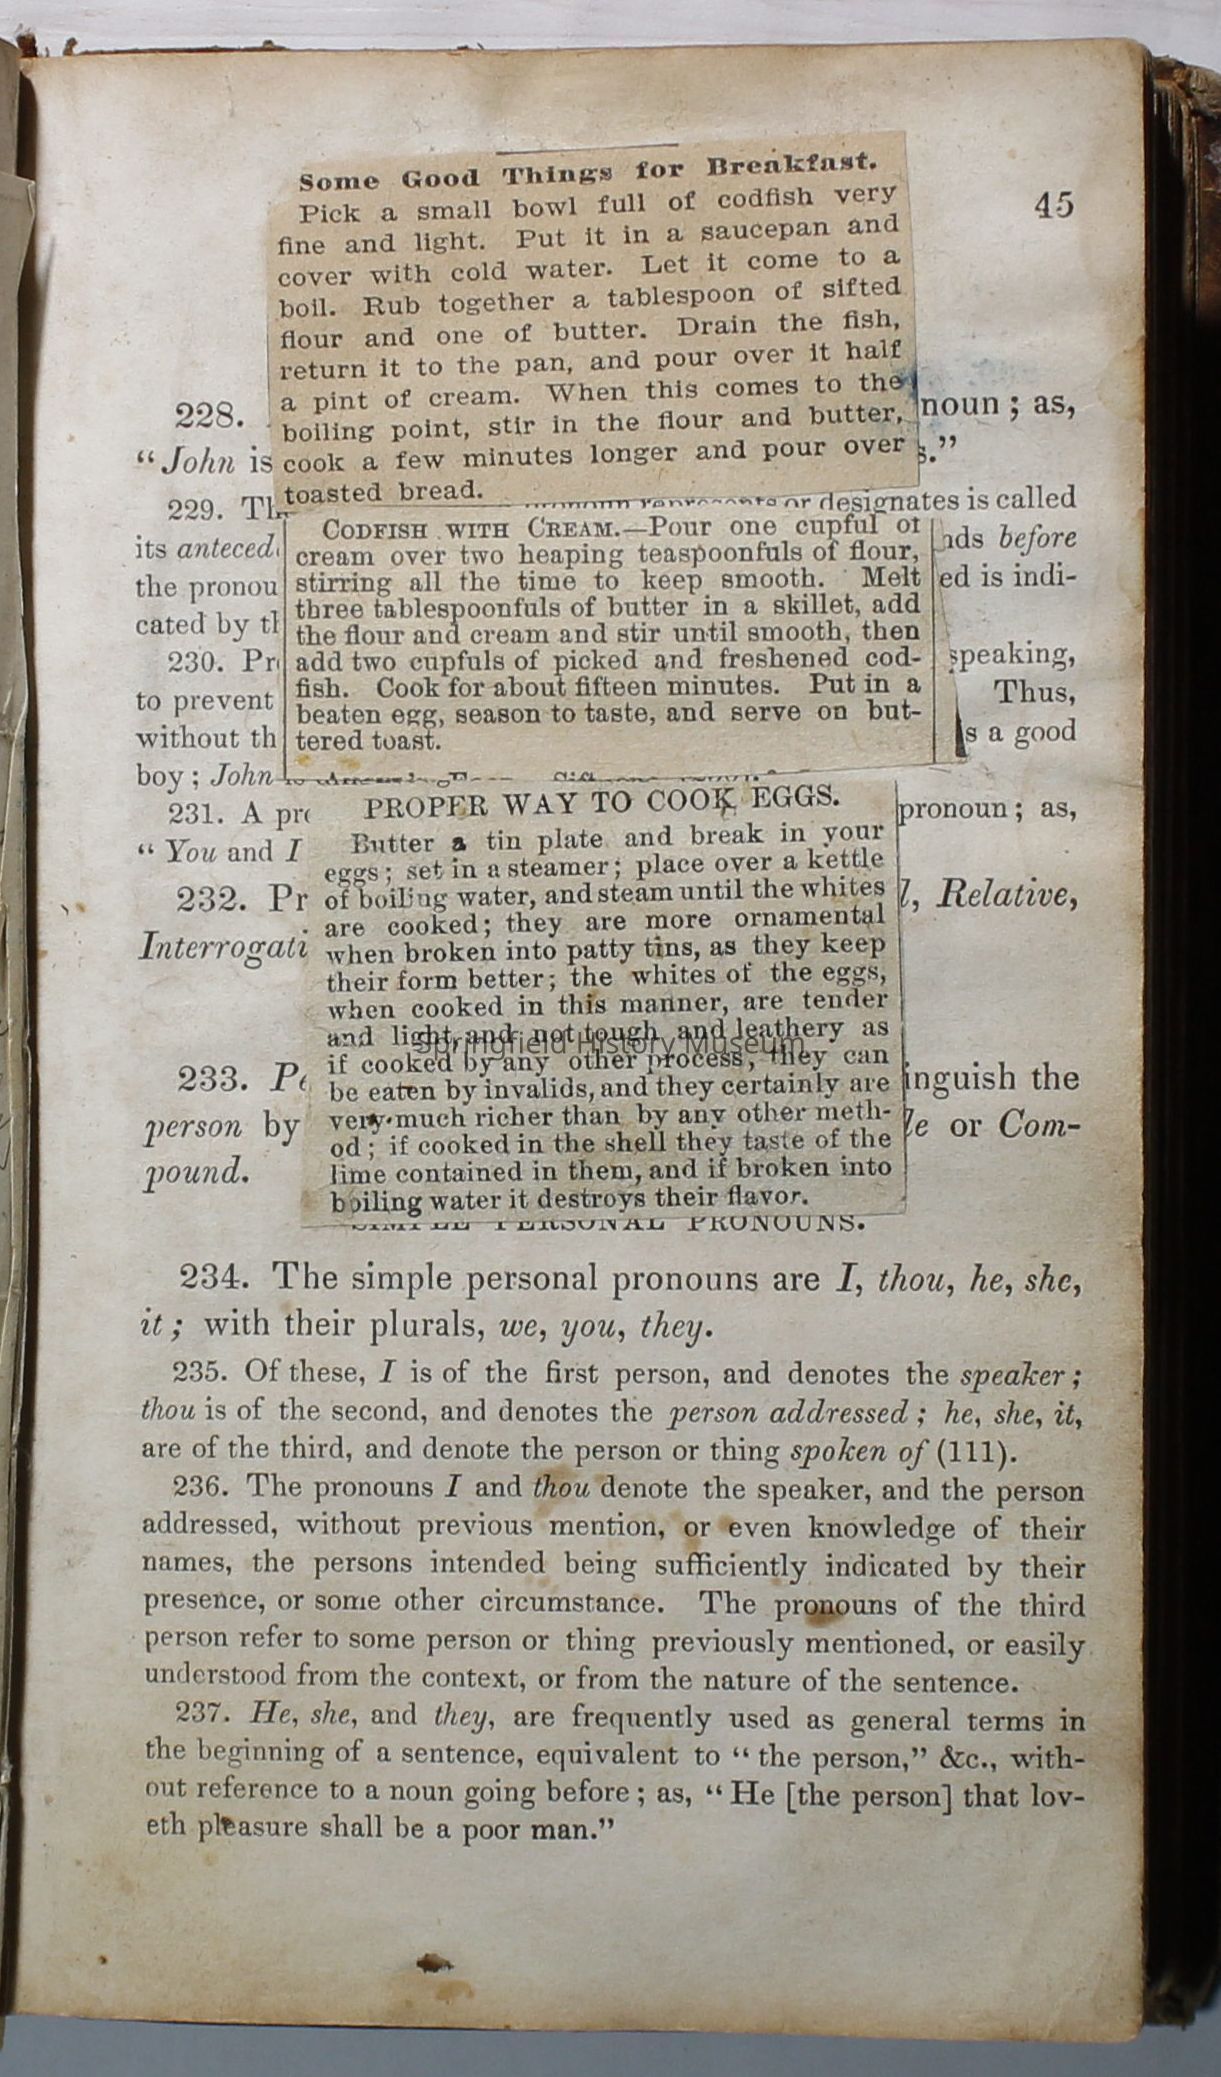 45
Some Good Things for Breakfast.
Pick a small bowl full of codfish very
fine and light. Put it in a saucepan and
cover with cold water. Let it come to a
boil. Rub together a tablespoon of sifted
flour and one of butter. Drain the fish,
return it to the pan, and pour over it half
a pint of cream. When this comes to the
boiling point, stir in the flour and butter,
cook a few minutes longer and pour over
toasted bread.
CODFISH WITH CREAM.—Pour one cupful of
cream over two heaping teaspoonfuls of flour,
stirring all the time to keep smooth. Melt
three tablespoonfuls of butter in a skillet, add
the flour and cream and stir until smooth, then
add two cupfuls of picked and freshened cod-
fish. Cook for about fifteen minutes. Put in a
beaten egg, season to taste, and serve on but-
tered toast.
PROPER WAY TO COOK EGGS.
Butter a tin plate and break in your
eggs; set in a steamer; place over a kettle
of boiling water, and steam until the whites
are cooked; they are more ornamental
when broken into patty tins, as they keep
their form better; the whites of the eggs,
when cooked in this manner, are tender
and light, and not tough and leathery as
if cooked by any other process; they can
be eaten by invalids, and they certainly are
very much richer than by any other meth-
od; if cooked in the shell they taste of the
lime contained in them, and if broken into
boiling water it destroys their flavor.
Springfield History Museum
228. noun; as,
"John is
229. designates is called
its before
the ed is indi-
cated by
230. speaking,
to prevent Thus,
without s a good
boy; John
231. A pronoun; as,
"You and I
232. Relative,
233. the
person by or Com-
pound.
SIMPLE PERSONAL PRONOUNS.
234. The simple personal pronouns are I, thou, he, she,
it; with their plurals, we, you, they.
235. Of these, I is of the first person, and denotes the speaker;
thou is of the second, and denotes the person addressed; he, she, it,
are of the third, and denote the person or thing spoken of (111).
236. The pronouns I and thou denote the speaker, and the person
addressed, without previous mention, or even knowledge of their
names, the persons intended being sufficiently indicated by their
presence, or some other circumstance. The pronouns of the third
person refer to some person or thing previously mentioned, or easily
understood from the context, or from the nature of the sentence.
237. He, she, and they, are frequently used as general terms in
the beginning of a sentence, equivalent to "the person," &c., with-
out reference to a noun going before; as, "He [the person] that lov-
eth pleasure shall be a poor man."